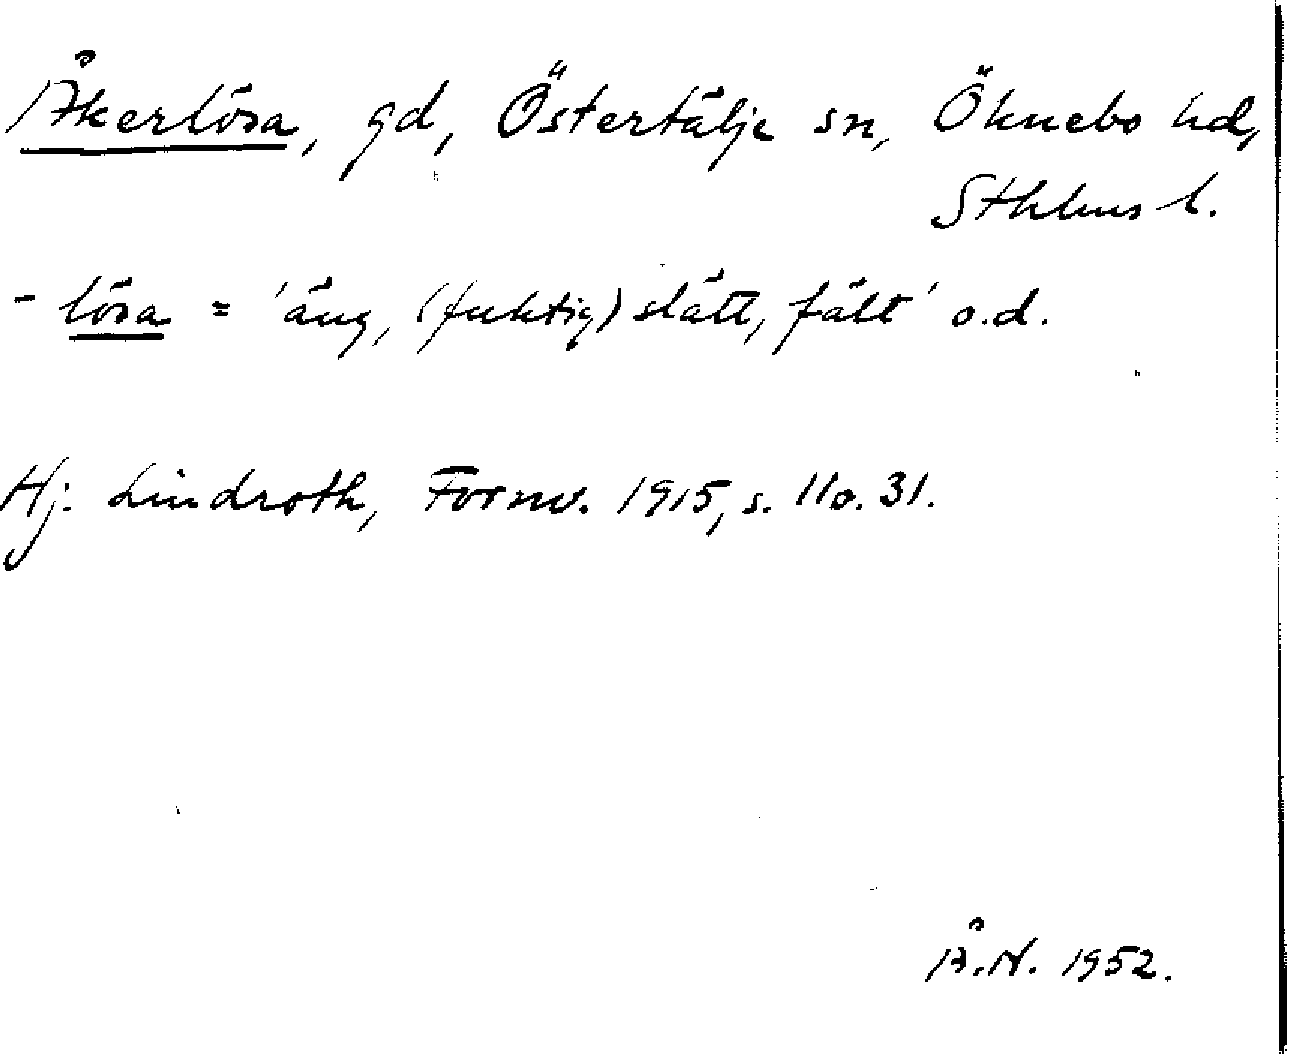 Åkerlösa, gd, Östertälje sn, Öknebo hd,
Sthlms l.
- lösa = 'äng, (fuktig) slätt, fält' o.d.
Hj. Lindroth, Fornv. 1915, s. 11 o. 31.
Å.N. 1952.